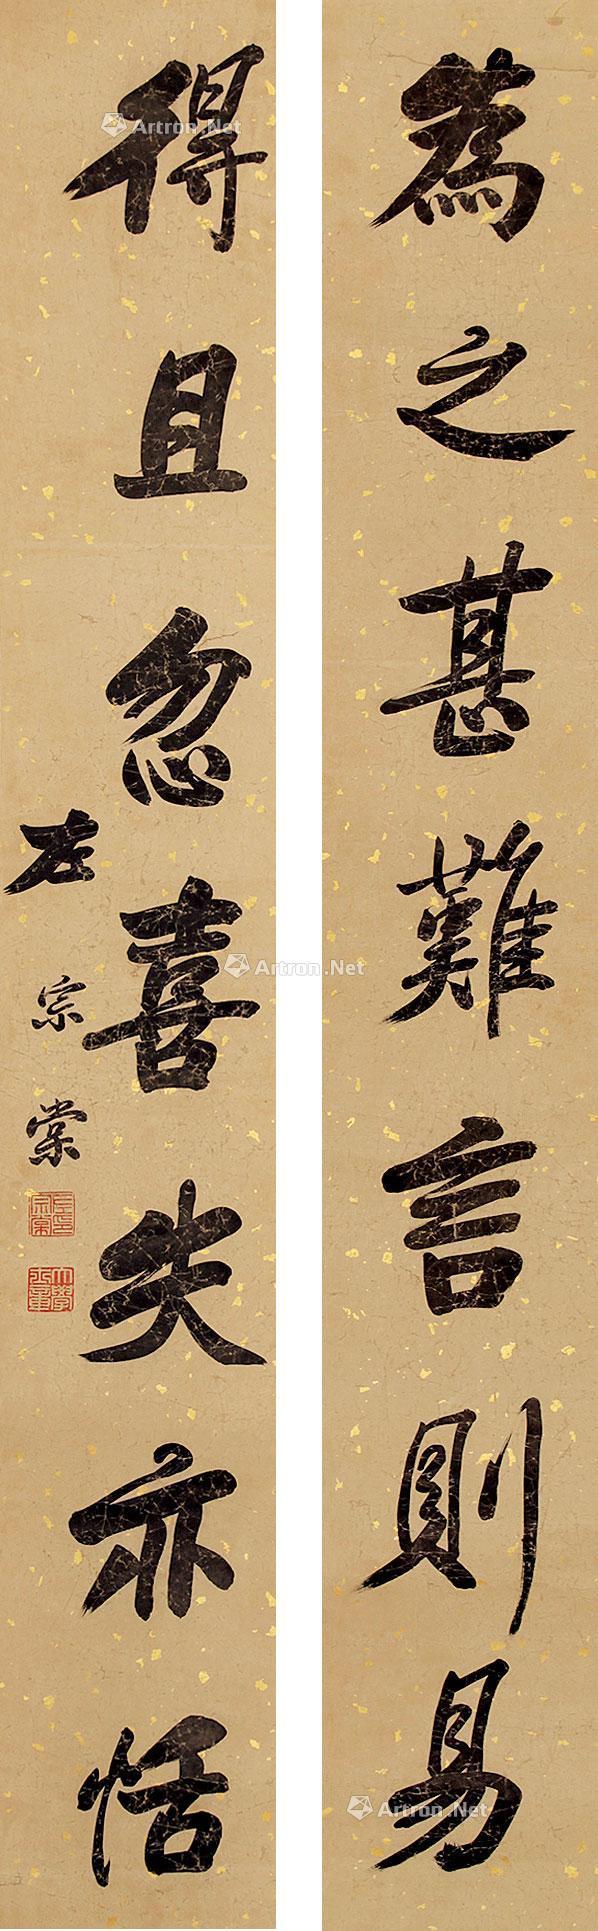 為之甚難言則易
得且忽喜失亦恬
左宗棠
左印宗棠
大學士章
Artron.Net
Artron.Net
Artron.Net